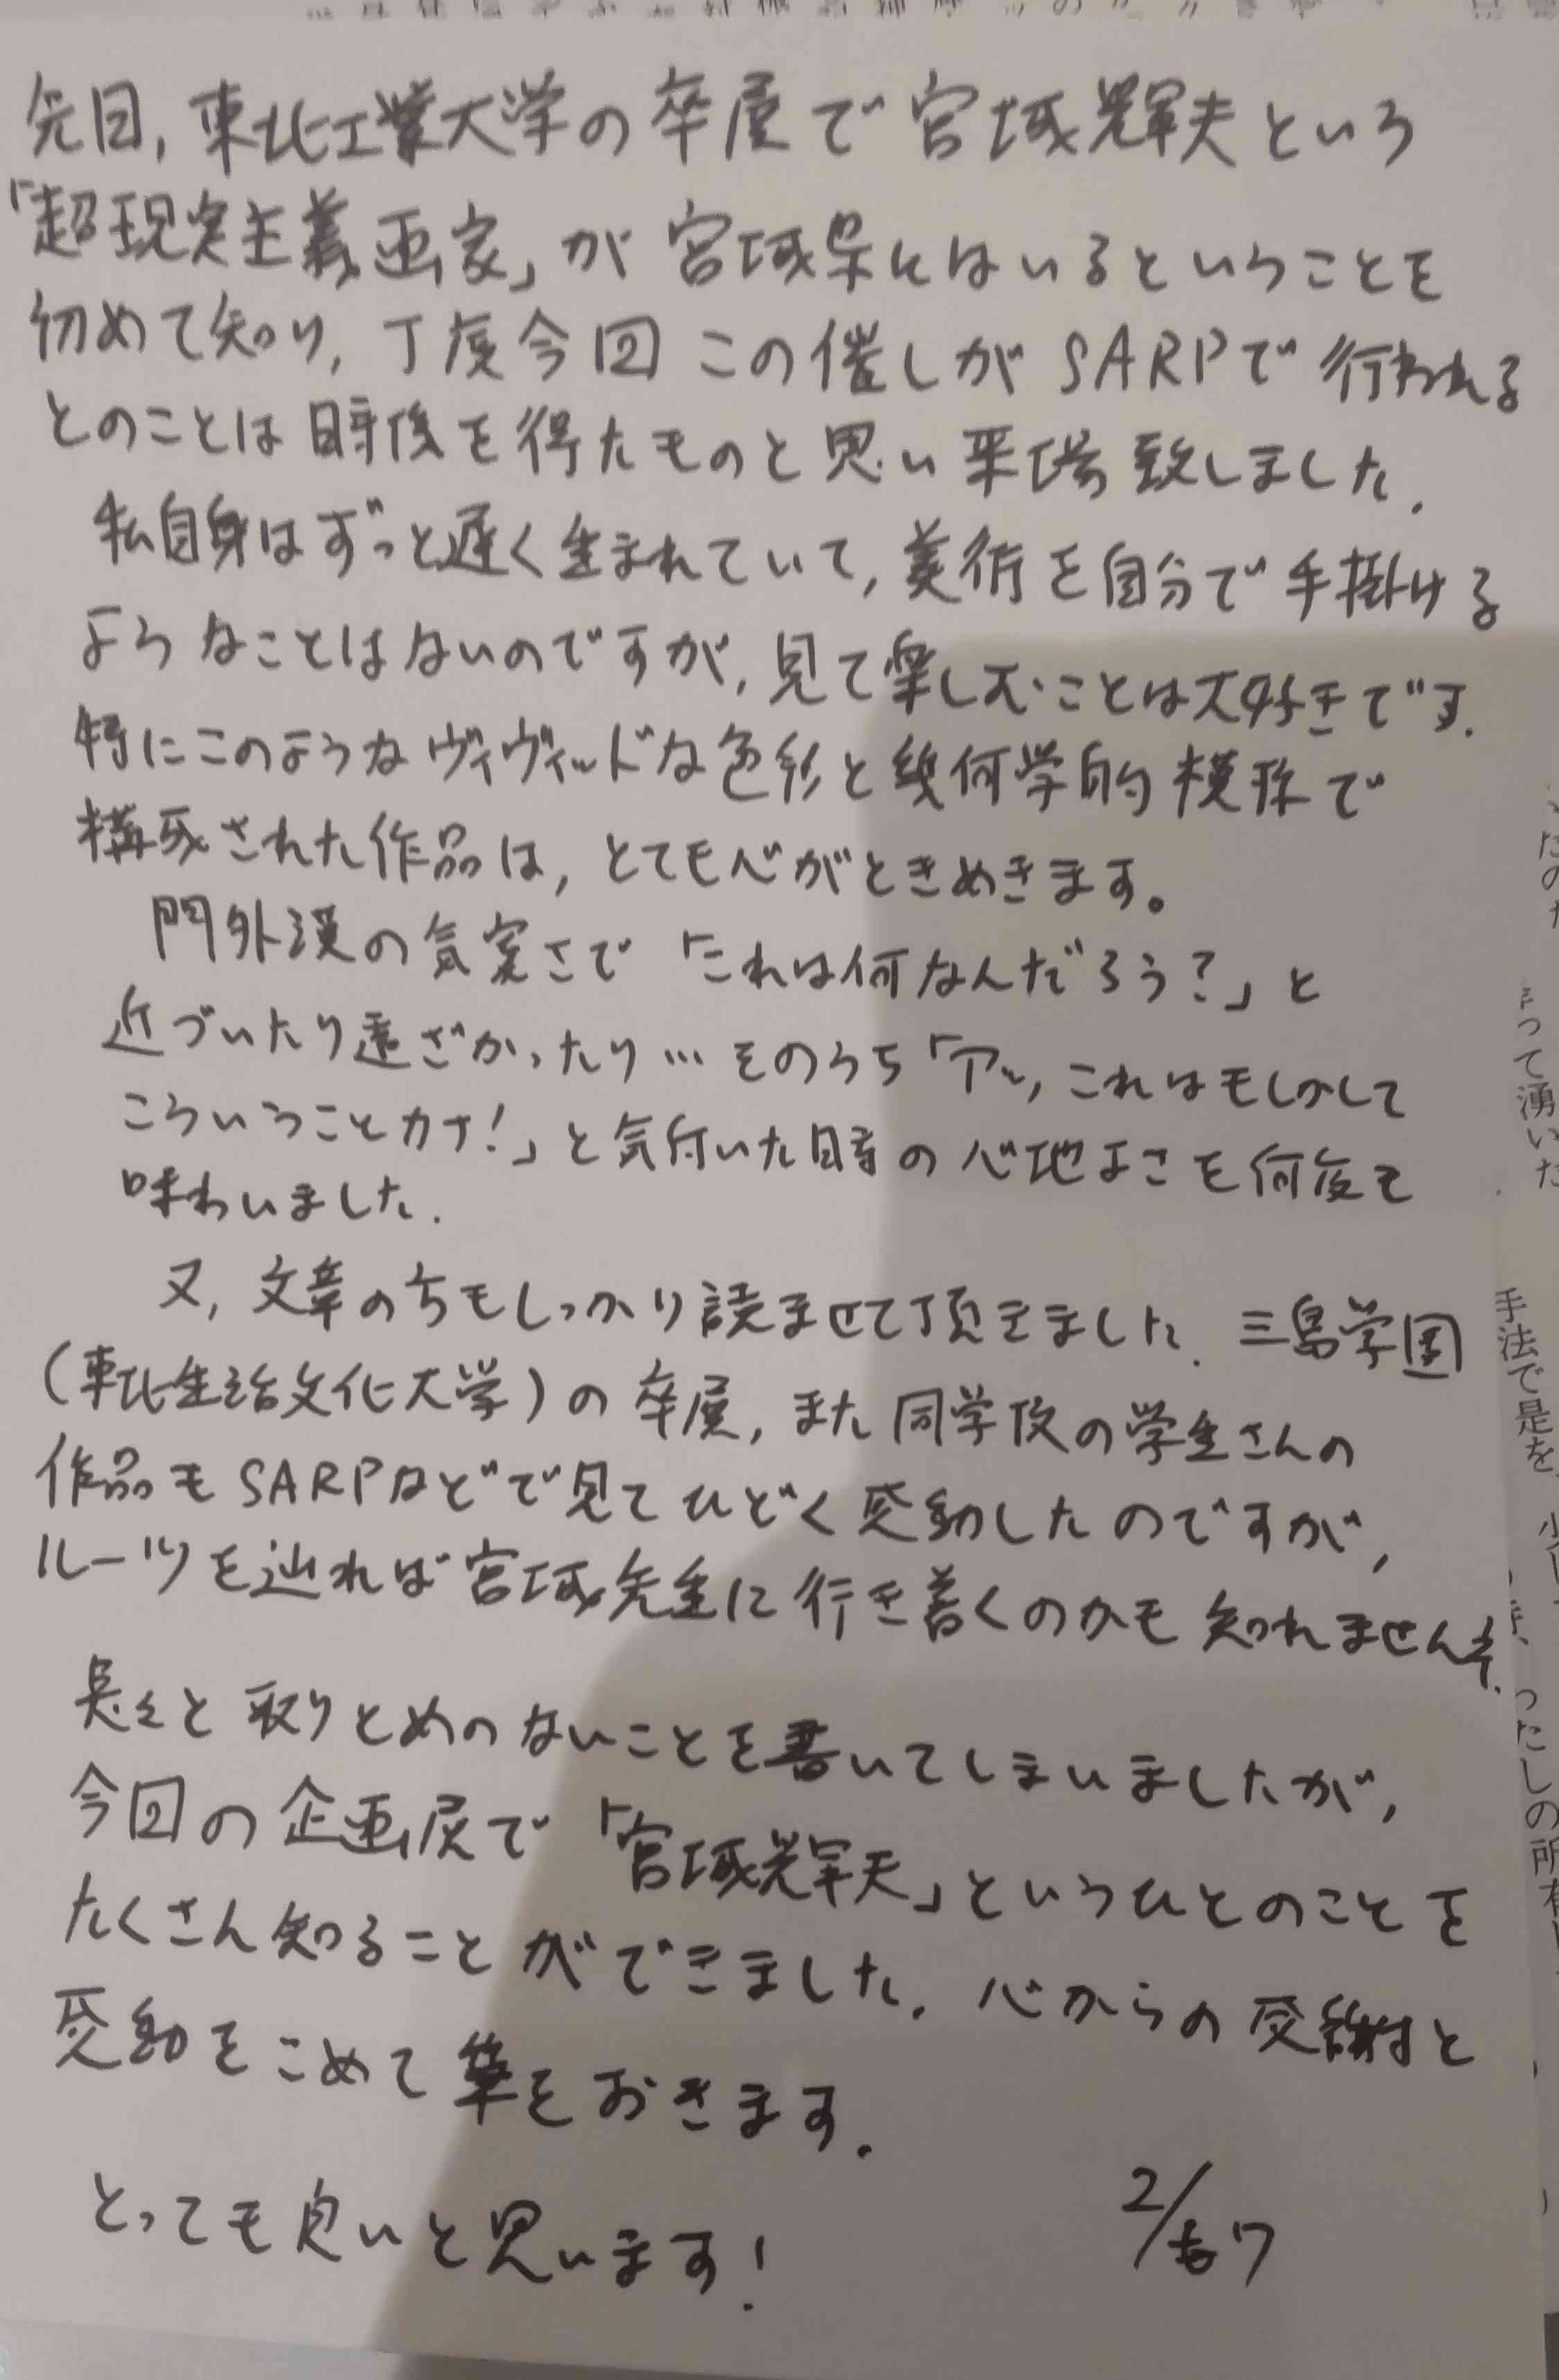 先日,東北工業大学の卒展で宮城輝夫という
「超現実主義画家」が宮城県にはいるということを
初めて知り,丁度今回この催しがSARPで行われる
とのことは時候を得たものと思い来場致しました.
私自身はずっと遅く生まれていて,美術を自分で手掛ける
ようなことはないのですが,見て楽しむことは大好きです.
特にこのようなヴィヴィッドな色彩と幾何学的模様で
構成された作品は,とても心がときめきます。
門外漢の気安さで「これは何なんだろう?」と
近づいたり遠ざかったり…そのうち「アッ,これはもしかして
こういうことカナ!」と気付いた時の心地よさを何度も
味わいました.
又,文章の方もしっかり読ませて頂きました.三島学園
(東北生活文化大学)の卒展,また同学校の学生さんの
作品もSARPなどで見てひどく感動したのですが,
ルーツを辿れば宮城先生に行き着くのかも知れませんネ.
長々と取りとめのないことを書いてしまいましたが,
今回の企画展で「宮城輝夫」というひとのことを
たくさん知ることができました.心からの感謝と
感動をこめて筆をおきます.
とっても良いと思います!
2/
って湧いた
手法で是を
ったしの所有